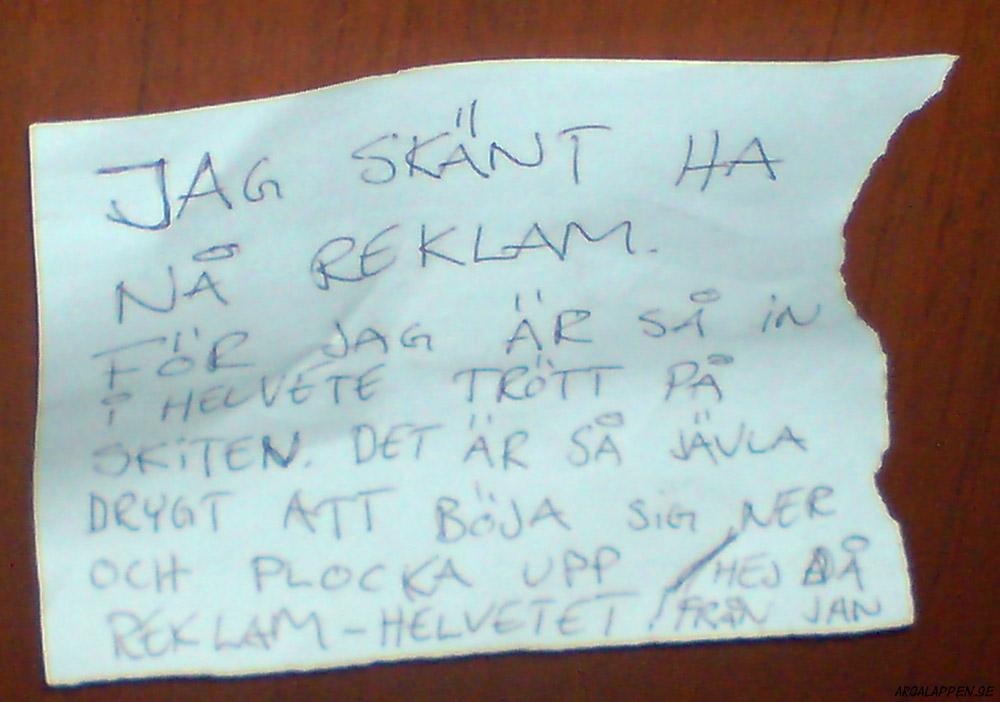 JAG SKÄNT HA
NÅ REKLAM.
FÖR JAG ÄR SÅ IN
I HELVETE TRÖTT PÅ
SKITEN. DET ÄR SÅ JÄVLA
DRYGT ATT BÖJA SIG NER
OCH PLOCKA UPP
REKLAM-HELVETET!
/HEJ DÅ
FRÅN JAN
ARGALAPPEN.SE